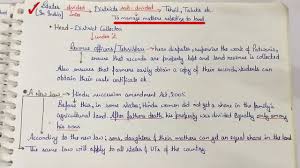 States divided → Districts sub-divided → Tehsil, Taluka etc.
(In India) into into
To manage matters relating to land
• Head - District Collector
↓ under
Revenue officers / Tehsildars → hears disputes, supervise the work of Patwaris,
ensure that records are properly kept and land revenue is collected
Also ensures that farmers easily obtain a copy of their records, students can
obtain their caste certificate etc.
• A new law - Hindu succession Amendment Act, 2005
Before this, in some states, Hindu women did not get a share in the family's
agricultural land. After father's death his property was divided equally only among
his sons
According to the new law; sons, daughters & their mothers can get an equal share in the land.
The same law will apply to all states & UTs of the country.